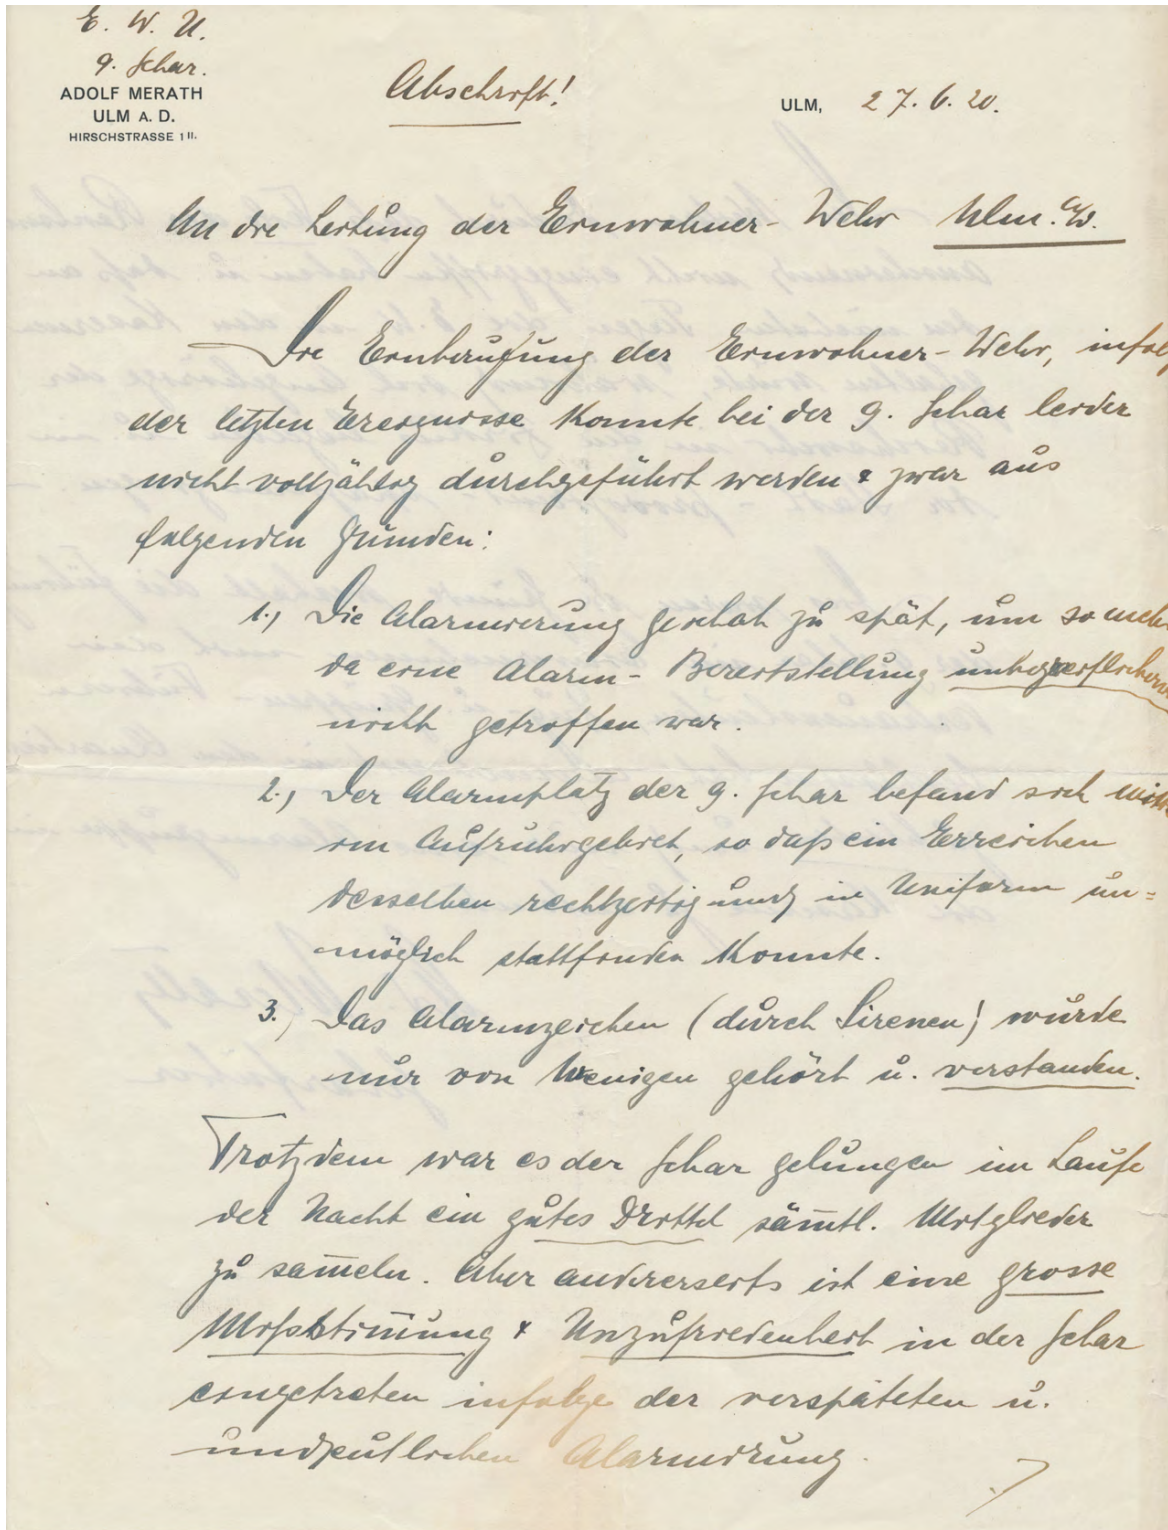 E. W. U.
9. Schar.
ADOLF MERATH
ULM A. D.
HIRSCHSTRASSE 1 II.
Abschrift!
ULM, 27. 6. 20.
An die Leitung der Einwohner- Wehr Ulm. a/D.
Die Einberufung der Einwohner- Wehr, infolg
der letzten Ereignisse konnte bei der 9. Schar leider
nicht vollzählig durchgeführt werden & zwar aus
folgenden Gründen:
1., Die Alarmierung geschah zu spät, um so mehr
da eine Alarm- Bereitstellung
nicht getroffen war.
2., Der Alarmplatz der 9. Schar befand sich mitte
im Aufruhrgebiet, so daß ein Erreichen
desselben rechtzeitig und in Uniform un=
möglich stattfinden konnte.
3., Das Alarmzeichen (durch Sirenen) wurde
nur von Wenigen gehört u. verstanden.
Trotzdem war es der Schar gelungen im Laufe
der Nacht ein gutes Drittel sämtl. Mitglieder
zu sam̄eln. Aber andererseits ist eine grosse
Missstim̄ung & Unzufriedenheit in der Schar
eingetreten infolge der verspäteten u.
undeutlichen Alarmierung.